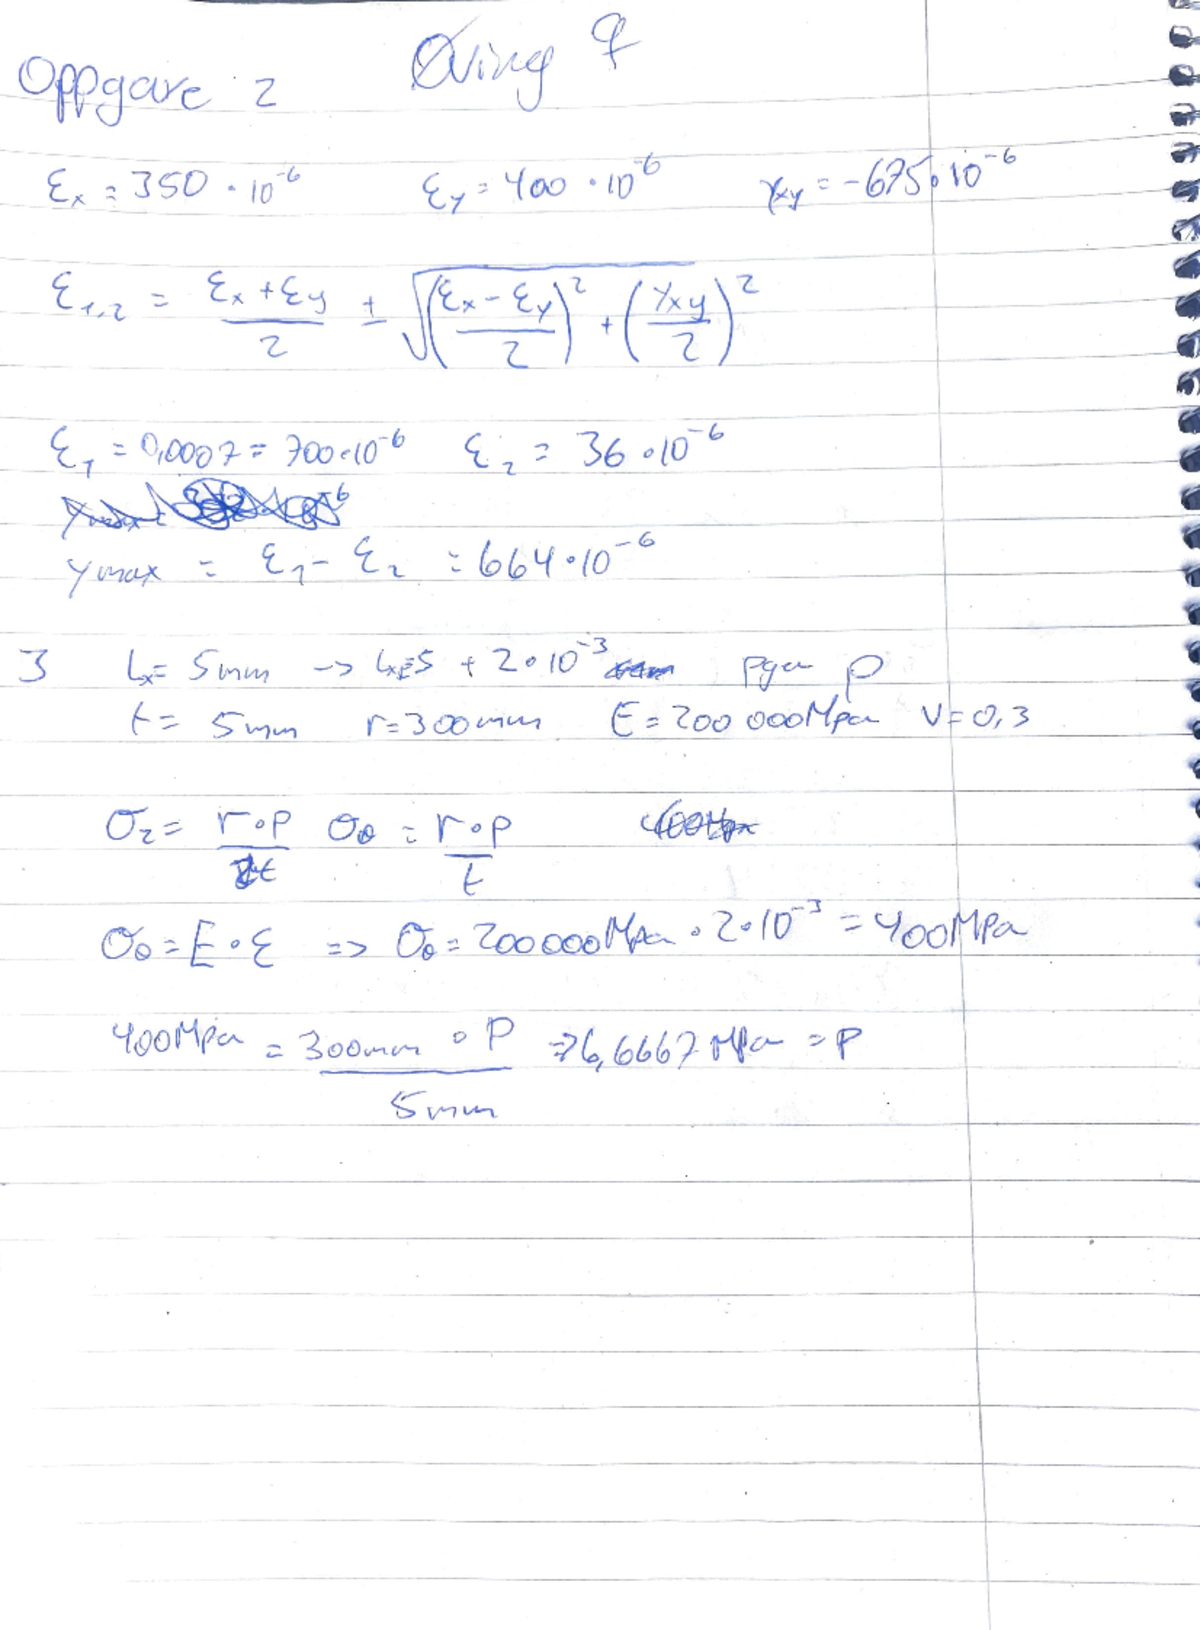 Oppgave 2 Øving 9
εx = 350 · 10^-6 εy = 400 · 10^-6 γxy = -675 · 10^-6
ε1,2 = (εx + εy)/2 ± √(((εx - εy)/2)^2 + (γxy/2)^2)
ε1 = 0,0007 = 700 · 10^-6 ε2 = 36 · 10^-6
γmax = ε1 - ε2 = 664 · 10^-6
3 Lx = 5mm -> Lx = 5 + 2 · 10^-3 pga p
t = 5mm r = 300mm E = 200 000Mpa V = 0,3
σz = r · p / 2t σθ = r · p / t
σθ = E · ε => σθ = 200000Mpa · 2 · 10^-3 = 400MPa
400Mpa = 300mm · P / 5mm => 6,6667 Mpa = P